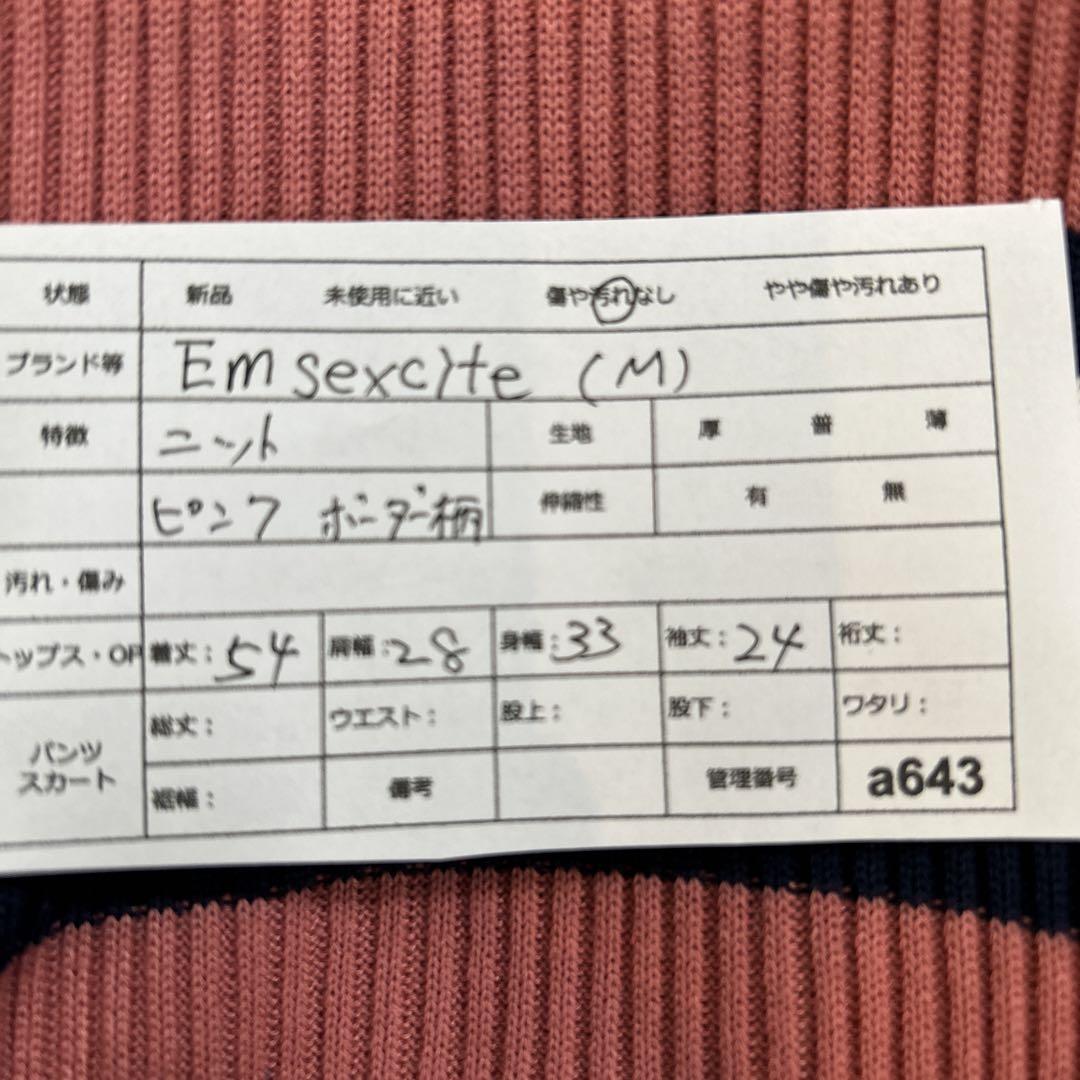 状態 新品 未使用に近い 傷や汚れなし やや傷や汚れあり
ブランド等 Emsexcite (M)
特徴 ニット 生地 厚 普 薄
ピンク ボーダー柄 伸縮性 有 無
汚れ・傷み
トップス・OP 着丈：54 肩幅：28 身幅：33 袖丈：24 裄丈：
パンツ スカート
総丈： ウエスト： 股上： 股下： ワタリ：
裾幅： 備考 管理番号 a643